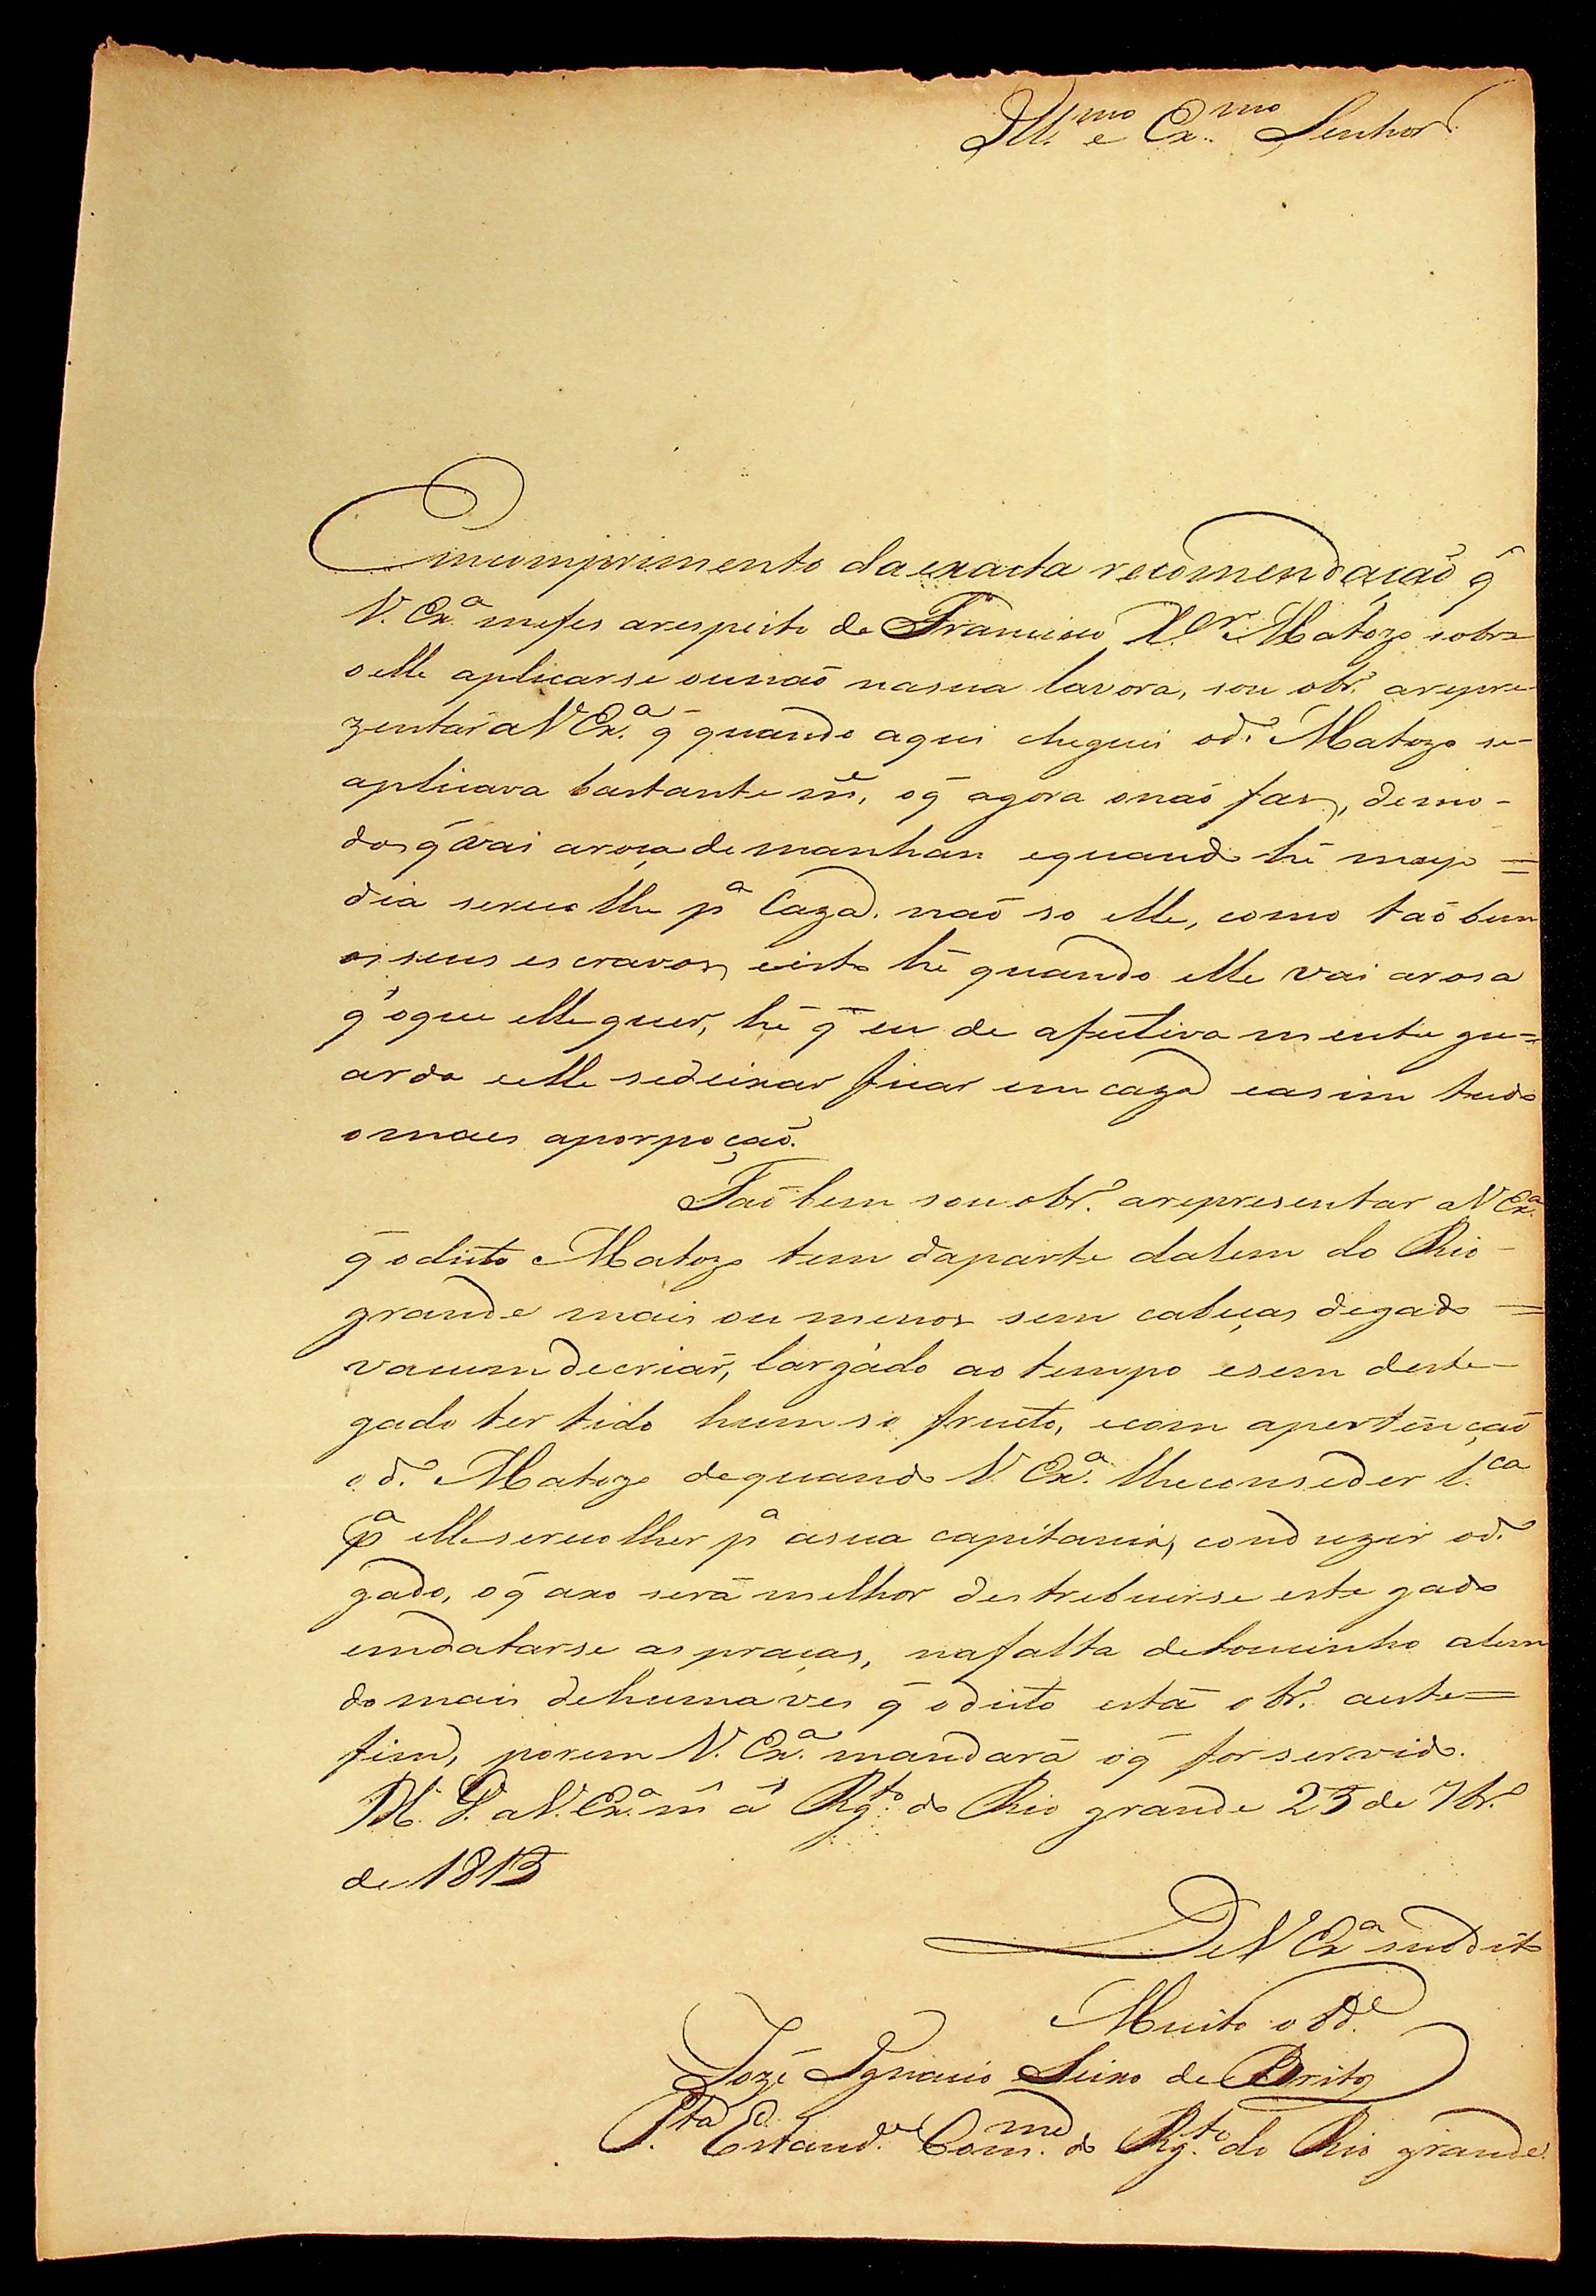 Ill.mo e Ex.mo Senhor
Emcomprimento daexacta recomendaçaõ q̃
V. Ex.a mefes arespeito de Francisco X.er Matozo sobre
o elle aplicarse ounaõ nasua lavora, sou obr.o arepre-
zentar a V Ex.a q̃ quando aqui cheguei o d.o Matozo se-
aplicava bastante m.te, oq̃ agora onaõ fas, demo-
dos q̃ vai aroça demanhan equando hé meyo =
dia serecolhe p.a Caza. naõ so elle, como taõ bem
os seus escravos, eisto hé quando elle vai arosa
q̃ oque elle quer, hé q̃ eu de afectiva mente gu=
arda eelle sedeixar ficar em caza easim tudo
omais aporpoçaõ.
Taõ bem sou obr.o arepresentar a V Ex.a
q̃ odicto Matozo tem daparte dalem do Rio-
grande mais ou menos sem cabeças degado =
vacum decriar, largado ao tempo esem deste-
gado ter tido hum so fructo, ecom apertençaõ
o d.o Matozo dequando V. Ex.a lheconseder l.ca
p.a elleserecolher p.a asua capitania, conduzir o d.o
gado, oq̃ axo será melhor destrebuirse este gado
emdatarse as praças, nafalta detoucinho alem
do mais dehuma ves q̃ odicto está obr.o aeste=
fim, porem V. Ex.a mandará oq̃ for servido.
D.s G. a V. Ex.a m.s a.s Rg.to do Rio grande 25 de 7br.o
de 1813
De V Ex.a suddito
Muito obd.e
Jozé Ignacio Seixo de Brito
P.ta Estand.e Com.md do Rg.to do Rio grande.